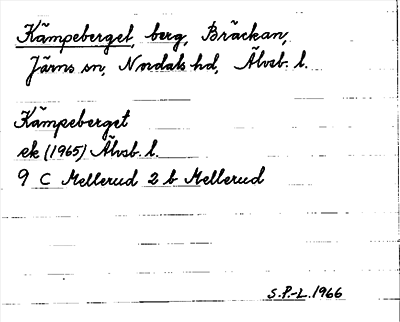 Kämpeberget, berg, Bräckan,
Järns sn, Nordals hd, Älvsb. l.
Kämpeberget
ek (1965) Älvsb. l.
9 C Mellerud 2 b Mellerud
S.P.-L. 1966